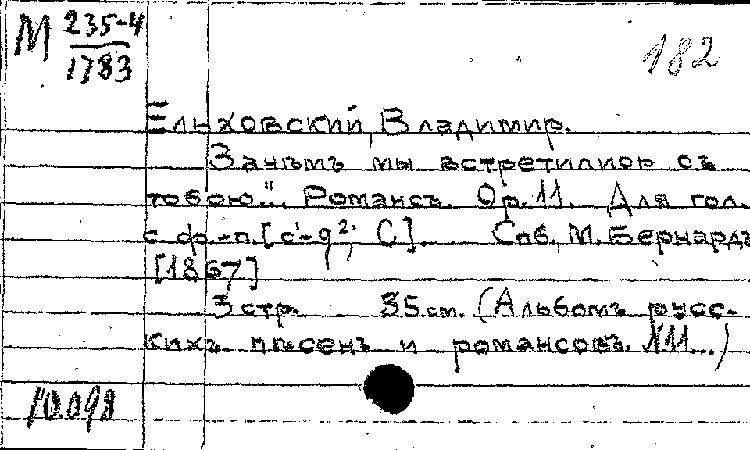 М 235-4
1783
182
Ельховский, Владимир.
Зачѣмъ мы встретились съ
тобою".. Романсъ. Ор. 11. Для гол.
с ф.-п. [c'-g²; C]. Спб, М. Бернардъ
[1867]
3 стр. 35 см. (Альбомъ русс-
кихъ пѣсенъ и романсовъ. №11...)
10.098